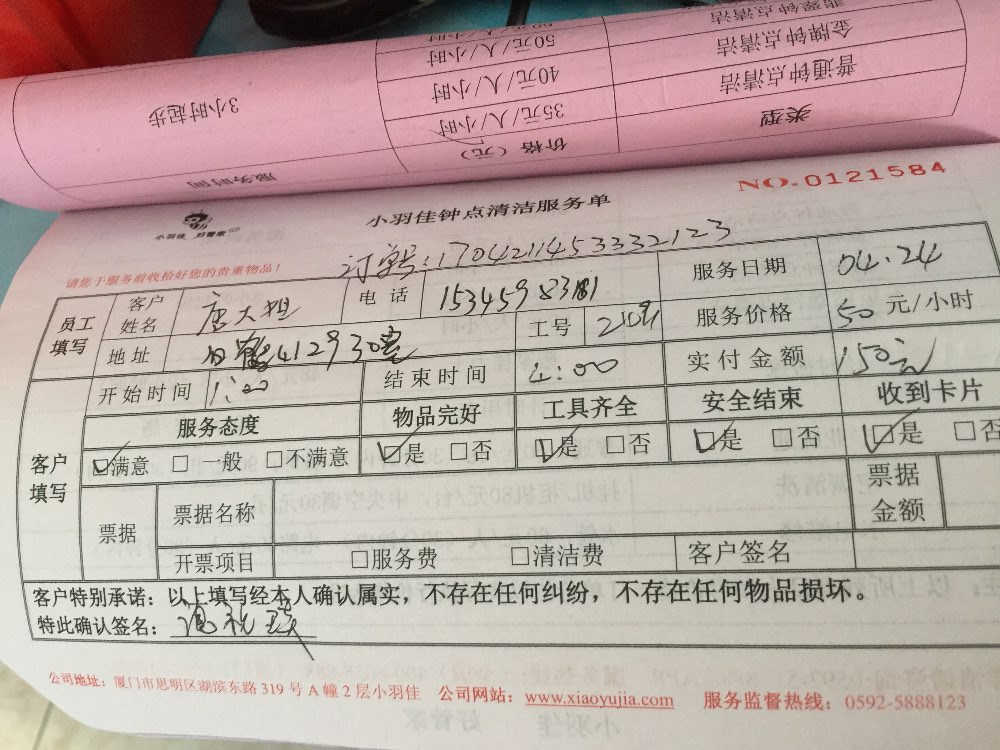 服务时间 价格（元） 类型
3小时起步 35元/人/小时 普通钟点清洁
40元/人/小时 金牌钟点清洁
50元/人/小时
NO.0121584
小羽佳 好管家
小羽佳钟点清洁服务单
请您于服务前收拾好您的贵重物品！
订单号:1704211453332123
员工填写 客户姓名 唐大姐 电话 服务日期 04.24
地址 工号 服务价格 50 元/小时
开始时间 1:00 结束时间 4:00 实付金额 150元
客户填写 服务态度 物品完好 工具齐全 安全结束 收到卡片
☑满意 □一般 □不满意 ☑是 □否 ☑是 □否 ☑是 □否 ☑是 □否
票据 票据名称 票据金额
开票项目 □服务费 □清洁费 客户签名
客户特别承诺：以上填写经本人确认属实，不存在任何纠纷，不存在任何物品损坏。
特此确认签名：
公司地址：厦门市思明区湖滨东路 319 号 A 幢 2 层小羽佳 公司网站：www.xiaoyujia.com 服务监督热线：0592-5888123